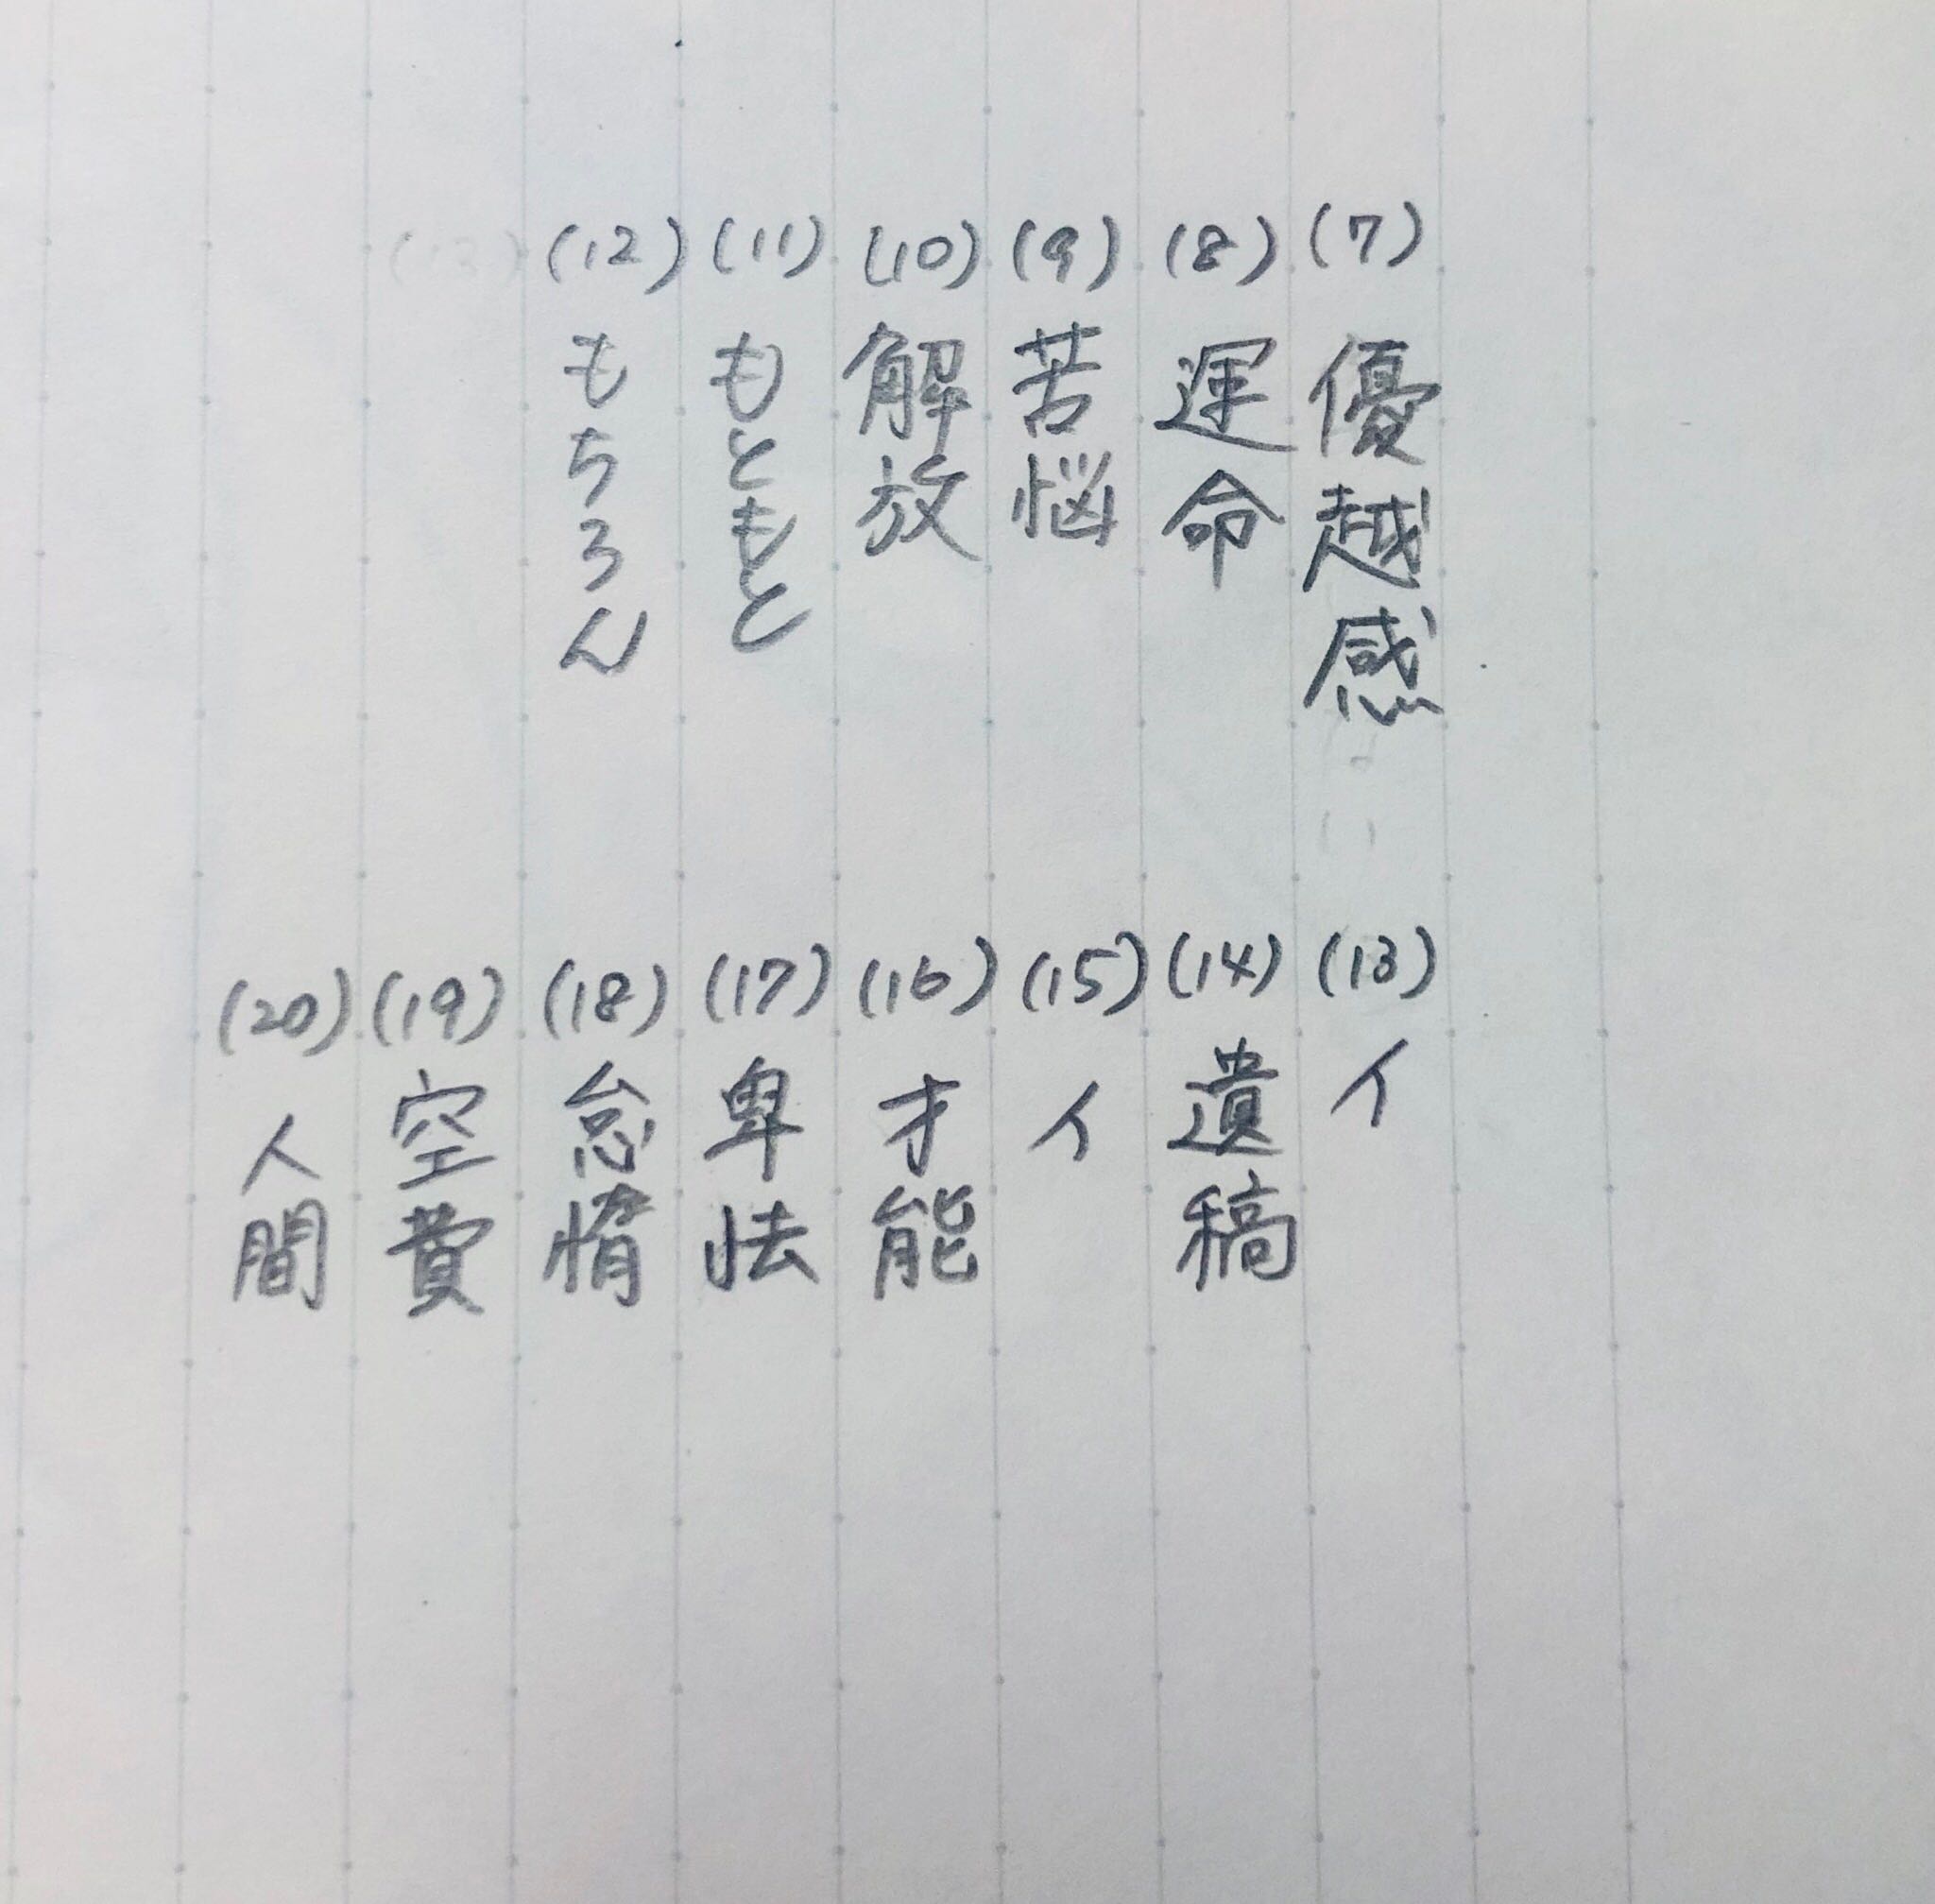 (7) 優越感
(8) 運命
(9) 苦悩
(10) 解放
(11) もともと
(12) もちろん
(13)
(13) イ
(14) 遺稿
(15) イ
(16) 才能
(17) 卑怯
(18) 怠惰
(19) 空費
(20) 人間